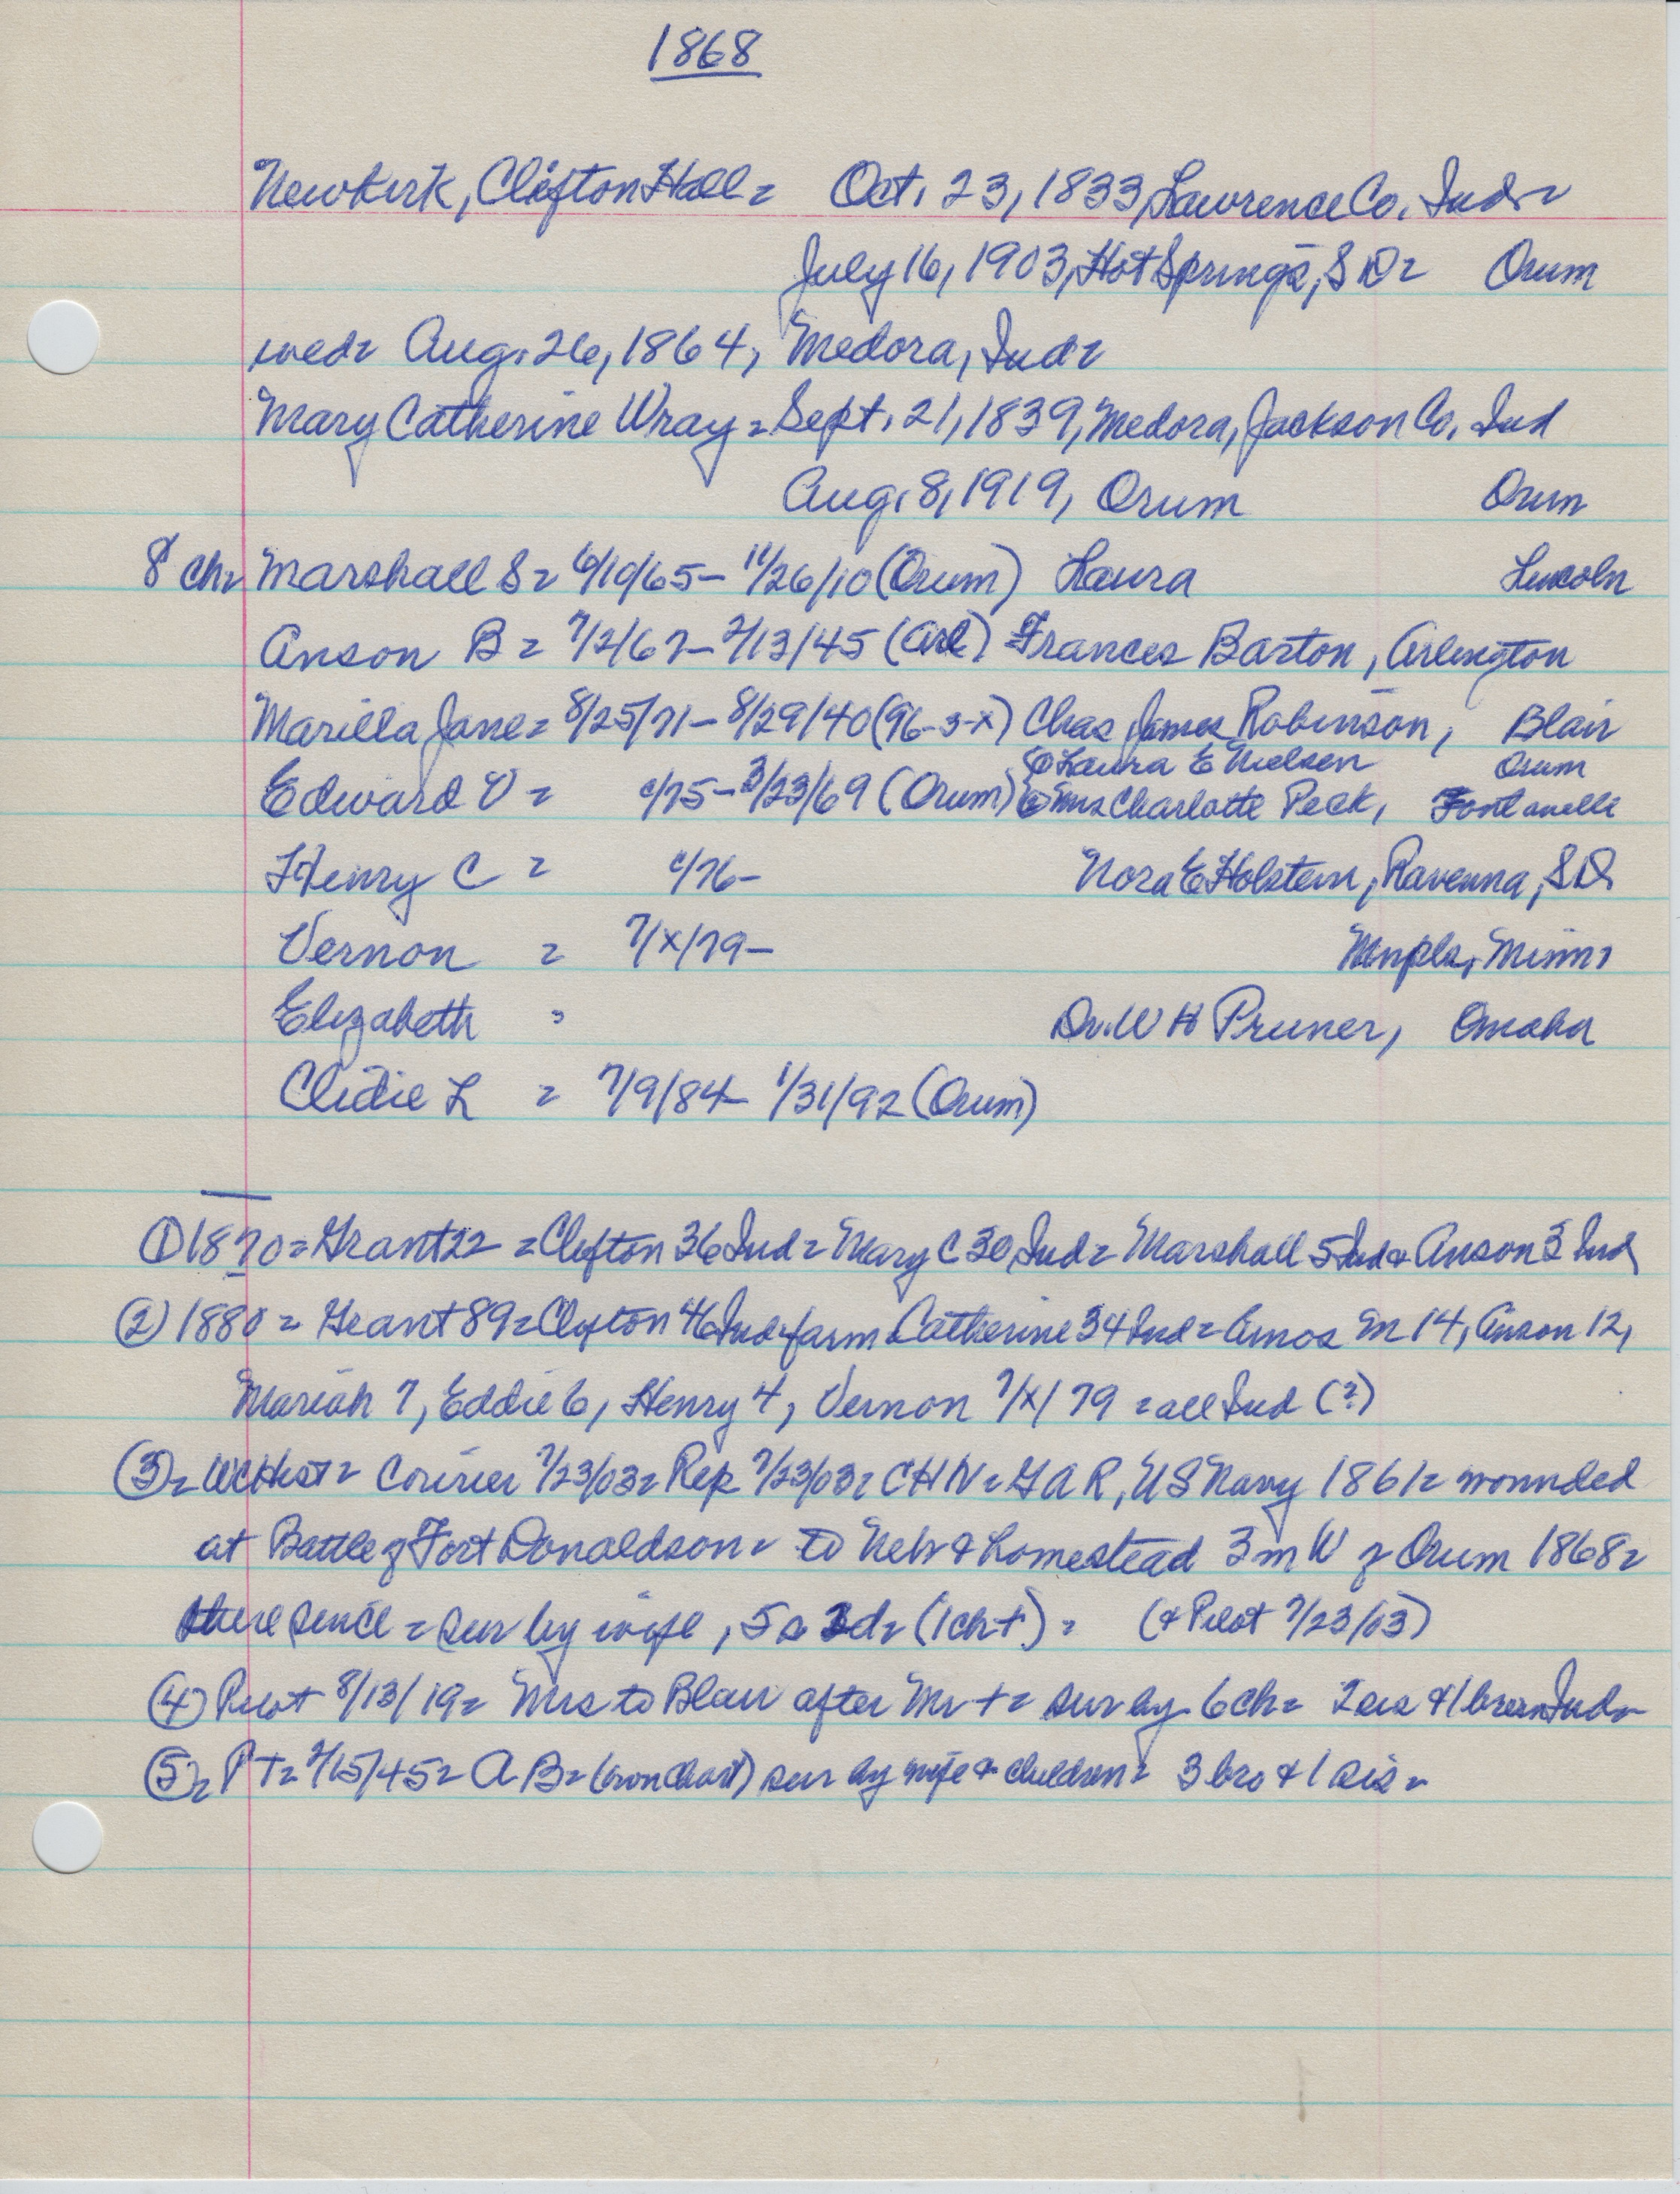 1868
Newkirk, Clifton Hall = Oct. 23, 1833, Lawrence Co. Ind =
July 16, 1903, Hot Springs, SD = Orum
wed = Aug. 26, 1864, Medora, Ind =
Mary Catherine Wray = Sept. 21, 1839, Medora, Jackson Co. Ind
Aug. 8, 1919, Orum Orum
8 ch = Marshall S = 6/10/65 – 11/26/10 (Orum) Laura Lincoln
Anson B = 7/2/67 – 2/13/45 (Arl) Frances Barton, Arlington
Marilla Jane = 8/25/71 – 8/29/40 (96-3-x) Chas James Robinson, Blair
① Laura E Nielsen Orum
Edward V = c/75 – 3/23/69 (Orum) ② Mrs Charlotte Peck, Fontanelle
Henry C = c/76 – Nora E Holstein, Ravenna, SD
Vernon = 7/x/79 – Mnpls, Minn
Elizabeth = Dr. W H Pruner, Omaha
Clidie L = 7/9/84 – 1/31/92 (Orum)
① 1870 = Grant 22 = Clifton 36 Ind = Mary C 30 Ind = Marshall 5 Ind & Anson 3 Ind
② 1880 = Grant 89 = Clifton 46 Ind farm & Catherine 34 Ind = Amos M 14, Anson 12,
Mariah 7, Eddie 6, Henry 4, Vernon 7/x/79 = all Ind (?)
③ = WCHist = Courier 7/23/03 = Rep 7/23/03 = CHN = GAR, US Navy 1861 = wounded
at Battle of Fort Donaldson = to Neb & homestead 3 m W of Orum 1868 =
there since = sur by wife, 5 s 2 d = (1 ch +) = (& Pilot 7/23/03)
④ Pilot 8/13/19 = Mrs to Blair after Mr + = sur by 6 ch = 2 sis & 1 bro in Ind =
⑤ = PT = 2/15/45 = A.B = (own chart) sur by wife & children = 3 bro & 1 sis =